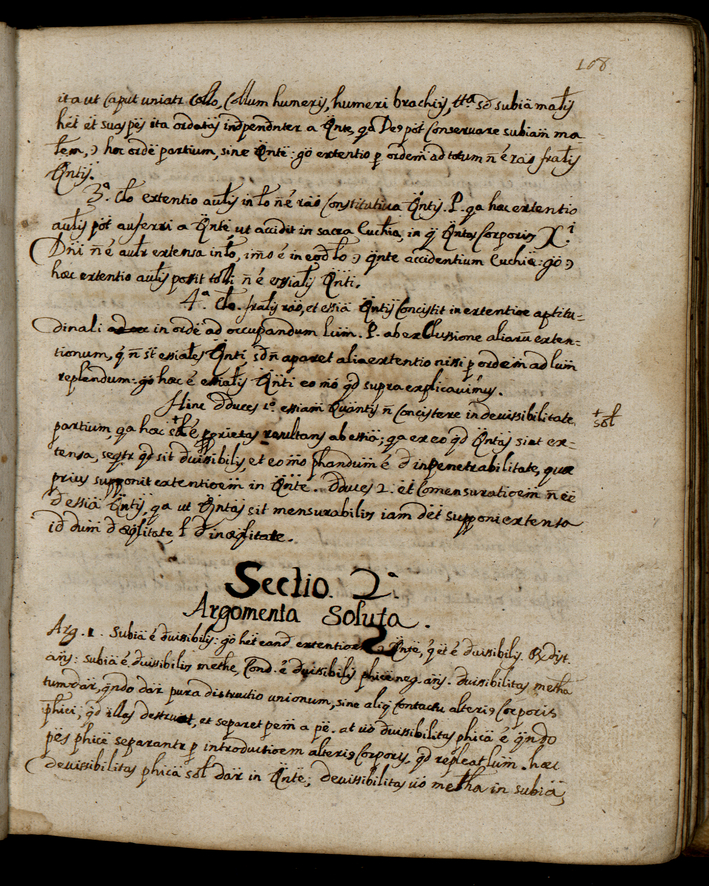 168
ita ut caput uniatr collo, collum humeris, humeri brachijs, ttª sed subiã malis
hẽt et suas pẽs ita ordatas indpendnter a Qnte, qa Deꝯ põt conservare subiam ma
lem, ꝯ hoc ordẽ partium, sinæ Qnte: gõ extentio p ordem ad totum ñ é rão fralis
Qntis.
3ª. Clo extentio aulis in lo ñ é rão constitutiva Qntis. P. qa hæc extentio
aulis põt auferri a Qnte ut accidit in sacra Euchia, in q̃ Qntas corporis Xⁱ
Dñi ñ é aulr extensa in lo, imo é in eod lo ꝯ Qnte accidentium Euchiæ: gõ ꝯ
hæc extentio aulis possit tolli ñ é essialis Qnti.
4ª. Clo. fralis rao, et essia Qntis concistit in extentione aptitu-
dinali in ordẽ ad occupandum lum. P. ab exclussione aliaru exten-
tionum, q̃ ñ st essiales Qnti, sd ñ aparet alia extentio nisi p ordem ad lum
replendum: gõ hæc é essialis Qnti eo mõ qd supra explicavimus.
Hinc dduces 1º. essiam Quantis ñ concistere in devissibilitate
partium, qa hæc + é pprietas resultans ab essia; qa ex eo qd Qntas sint ex-
+ sol
tensa, seqtr qd sit divissibilis, et eo mõ phandum é d inpenetrabilitate, quæ
prius supponit extentioem in Qnte. Dduces 2: et comensuratioem ñ eẽ
d essia Qntis, qa ut Qntas sit mensurabilis iam dẽt supponi extensa
id dum d æqlitate, l d inæqlitate.
Sectio. 2ª
Argomenta Soluta.
Arg. 1. Subia é divissibilis: gõ hẽt eand extentioem Qnte, q̃ et é divissibilis. Rx dist.
añs: subia é divissibilis methe, cond. é divissibilis phice neg. añs. divissibilitas metha
tum dãr, qndo dãr pura distructio unionum, sine aliq contactu alteriꝯ corporis
phici, qd illas destruat, et separet pem a pe. at vo divissibilitas phica é qndo
pẽs phice separantr p introductioem alteriꝯ corporis, qd repleat lum. hæc
devissibilitas phica sol dãr in Qnte; devissibilitas vo metha in subia,